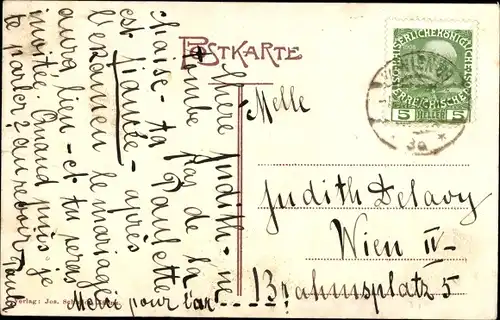 POSTKARTE
Chère Judith - ne
tombe pas de la
chaise - ta Paulette
est fiancée - après
l'examen le mariage
aura lieu - et tu seras
invitée. Quand puis-je
te parler?
Merci pour l'ar
Melle
Judith Delavy
Wien IV-
Brahmsplatz 5
KAISERLICHE KÖNIGLICHE
ÖSTERREICHISCHE
5 HELLER 5
WIEN
Verlag: Jos.